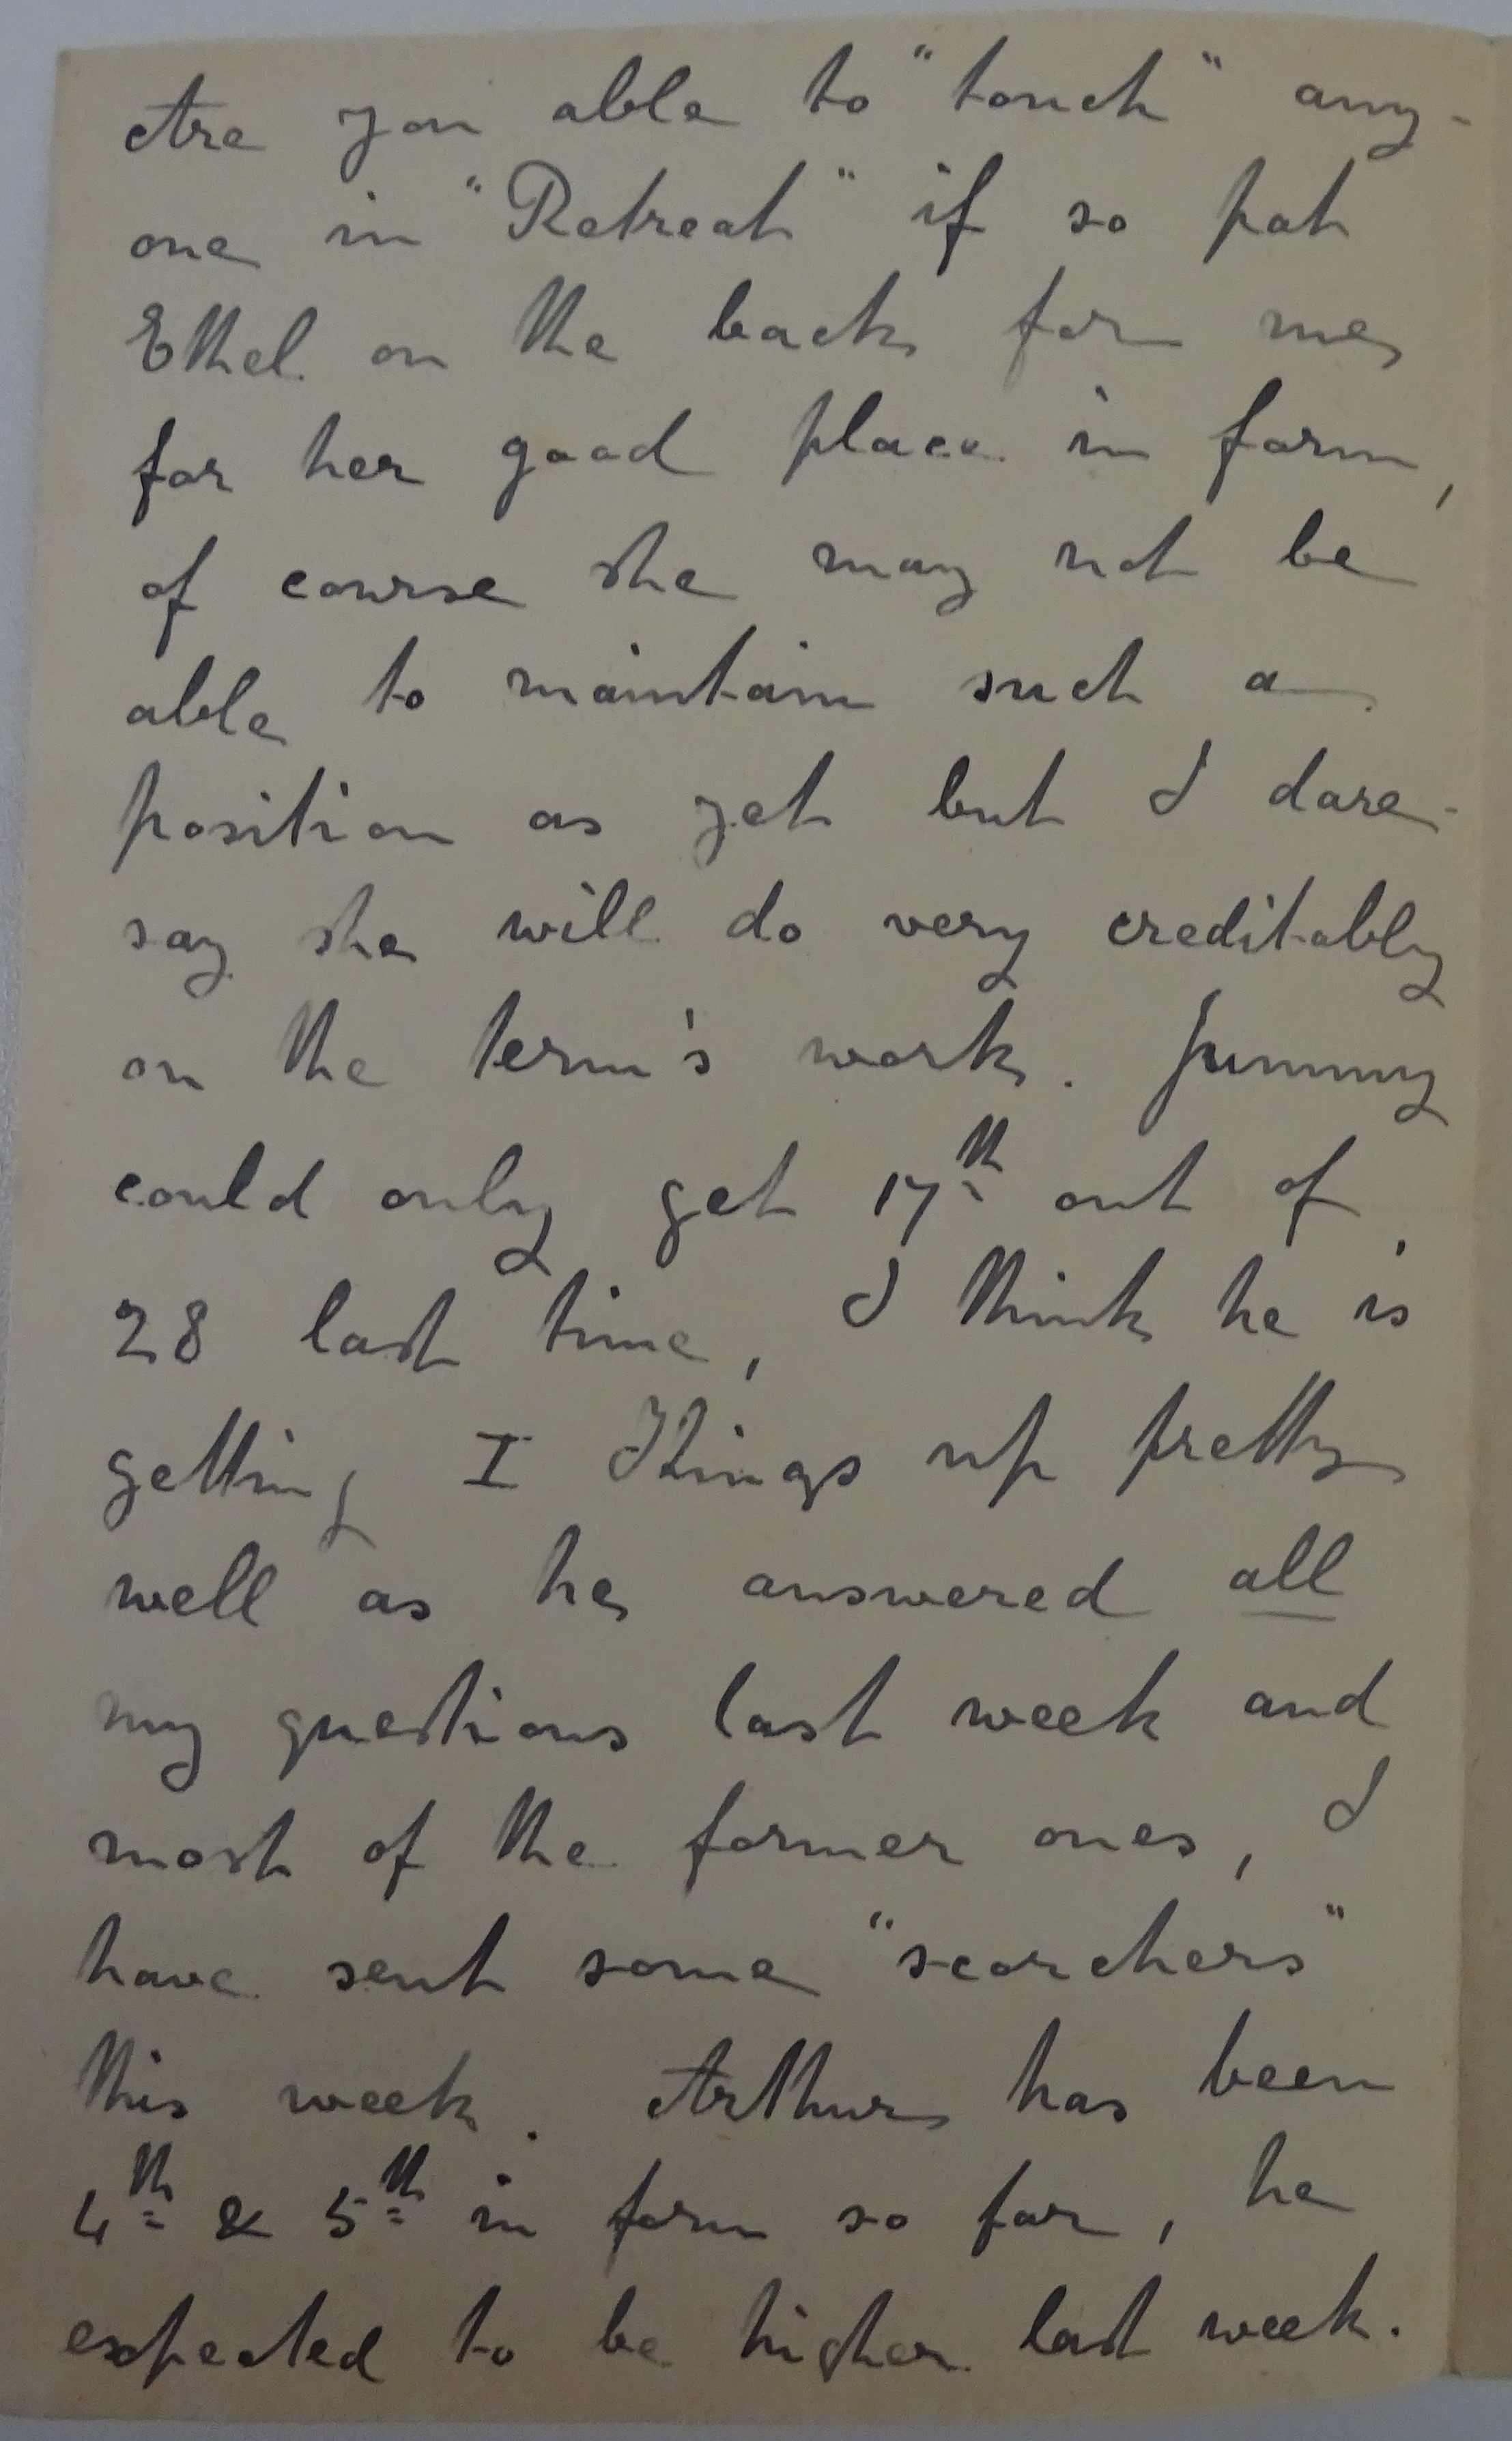 Are you able to "touch" any-
one in "Retreat" if so pat
Ethel on the back for me
for her good place in form,
of course she may not be
able to maintain such a
position as yet but I dare-
say she will do very creditably
on the term's work. Jummy
could only get 17th out of
28 last time, I think he is
getting I Kings up pretty
well as he answered all
my questions last week and
most of the former ones, I
have sent some "scorchers"
this week. Arthur has been
4th & 5th in form so far, he
expected to be higher last week.